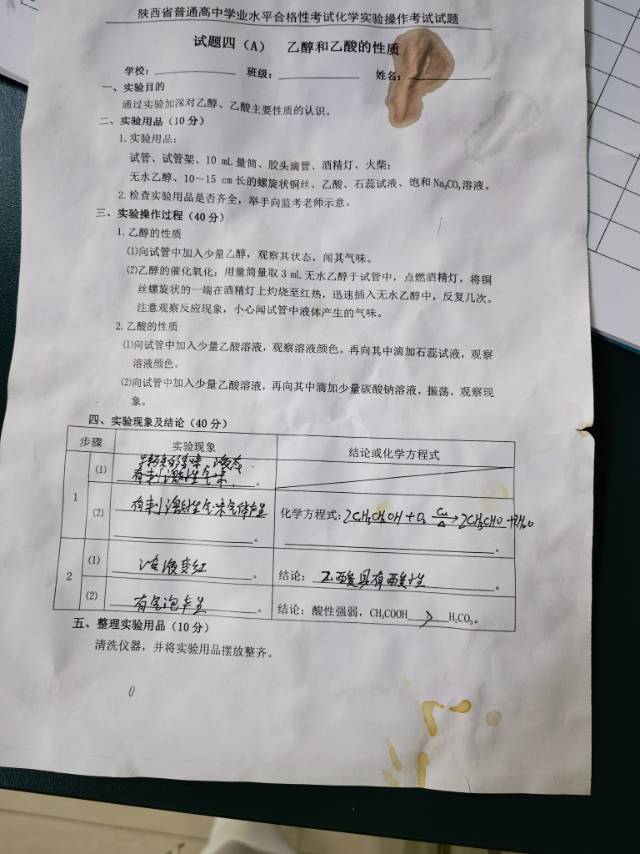 陕西省普通高中学业水平合格性考试化学实验操作考试试题
试题四（A） 乙醇和乙酸的性质
学校：　班级：　姓名：
一、实验目的
通过实验加深对乙醇、乙酸主要性质的认识。
二、实验用品（10 分）
1. 实验用品：
试管、试管架、10 mL 量筒、胶头滴管、酒精灯、火柴；
无水乙醇、10～15 cm 长的螺旋状铜丝、乙酸、石蕊试液、饱和 Na₂CO₃ 溶液。
2. 检查实验用品是否齐全，举手向监考老师示意。
三、实验操作过程（40 分）
1. 乙醇的性质
⑴向试管中加入少量乙醇，观察其状态，闻其气味。
⑵乙醇的催化氧化：用量筒量取 3 mL 无水乙醇于试管中，点燃酒精灯，将铜
丝螺旋状的一端在酒精灯上灼烧至红热，迅速插入无水乙醇中，反复几次。
注意观察反应现象，小心闻试管中液体产生的气味。
2. 乙酸的性质
⑴向试管中加入少量乙酸溶液，观察溶液颜色。再向其中滴加石蕊试液，观察
溶液颜色。
⑵向试管中加入少量乙酸溶液，再向其中滴加少量碳酸钠溶液，振荡，观察现
象。
四、实验现象及结论（40 分）
步骤　实验现象　结论或化学方程式
1 ⑴ 有刺激性气味。
⑵ 有刺激性气味气体产生。 化学方程式：2CH₃CH₂OH + O₂ Cu △ → 2CH₃CHO + 2H₂O。
2 ⑴ 溶液变红。 结论：乙酸具有酸性。
⑵ 有气泡产生。 结论：酸性强弱，CH₃COOH > H₂CO₃。
五、整理实验用品（10 分）
清洗仪器，并将实验用品摆放整齐。